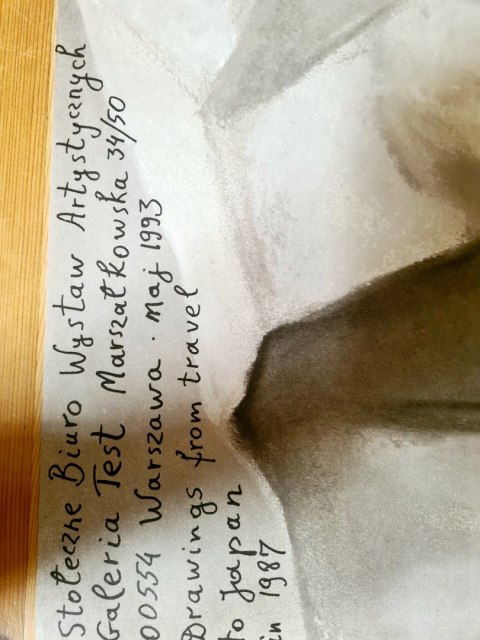 Stołeczne Biuro Wystaw Artystycznych
Galeria Test Marszałkowska 34/50
00554 Warszawa · Maj 1993
Drawings from travel
to Japan
in 1987